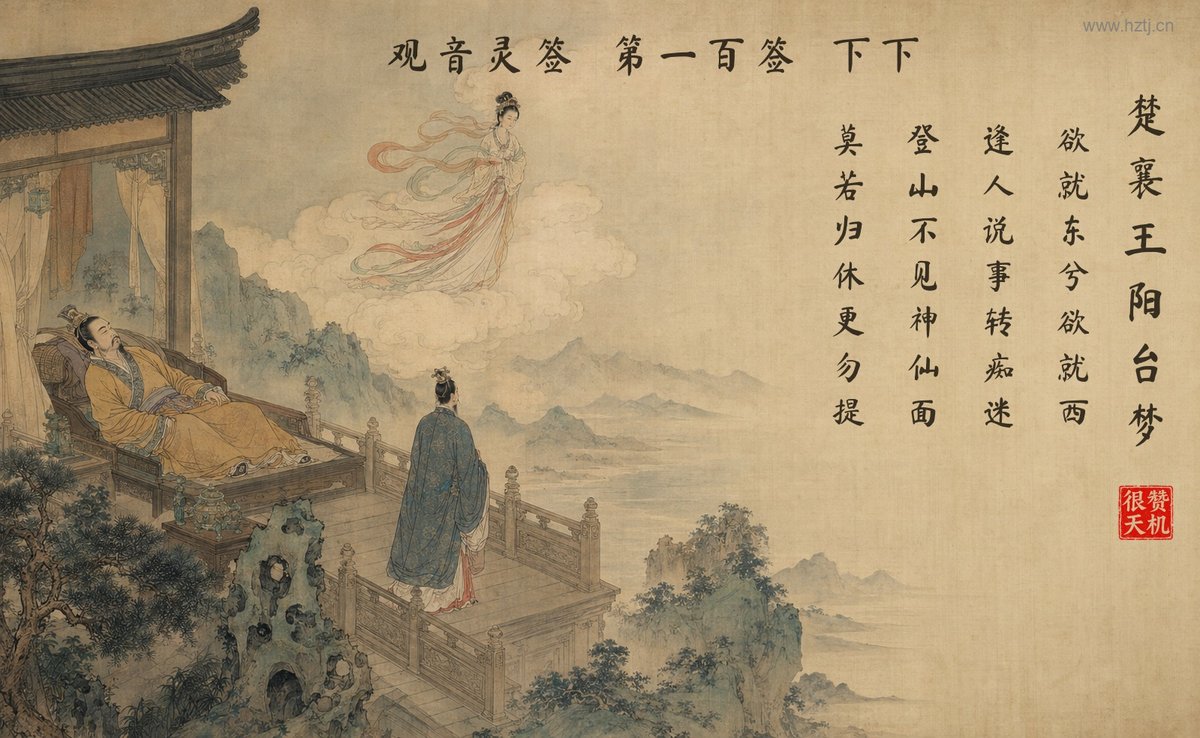 www.hztj.cn
观音灵签 第一百签 下下
楚襄王阳台梦
欲就东兮欲就西
逢人说事转痴迷
登山不见神仙面
莫若归休更勿提
很赞
天机